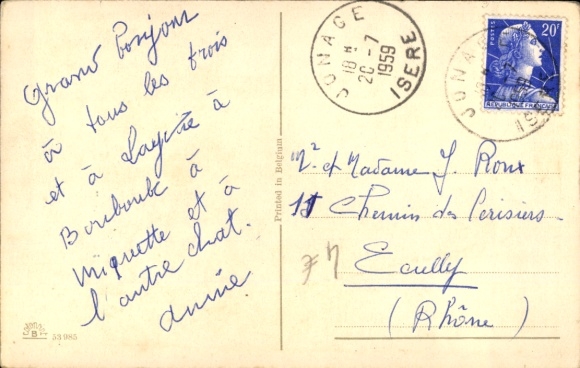 Grand bonjour
à tous les trois
et à
Bouboule à
Miquette et à
l'autre chat.
Annie.
53 985
Printed in Belgium
JONAGE
18 H
20 - 7
1959
ISERE
POSTES 20F
REPUBLIQUE FRANÇAISE
Mr et Madame J. Roux
11 Chemin des Cerisiers
Ecully
(Rhône)